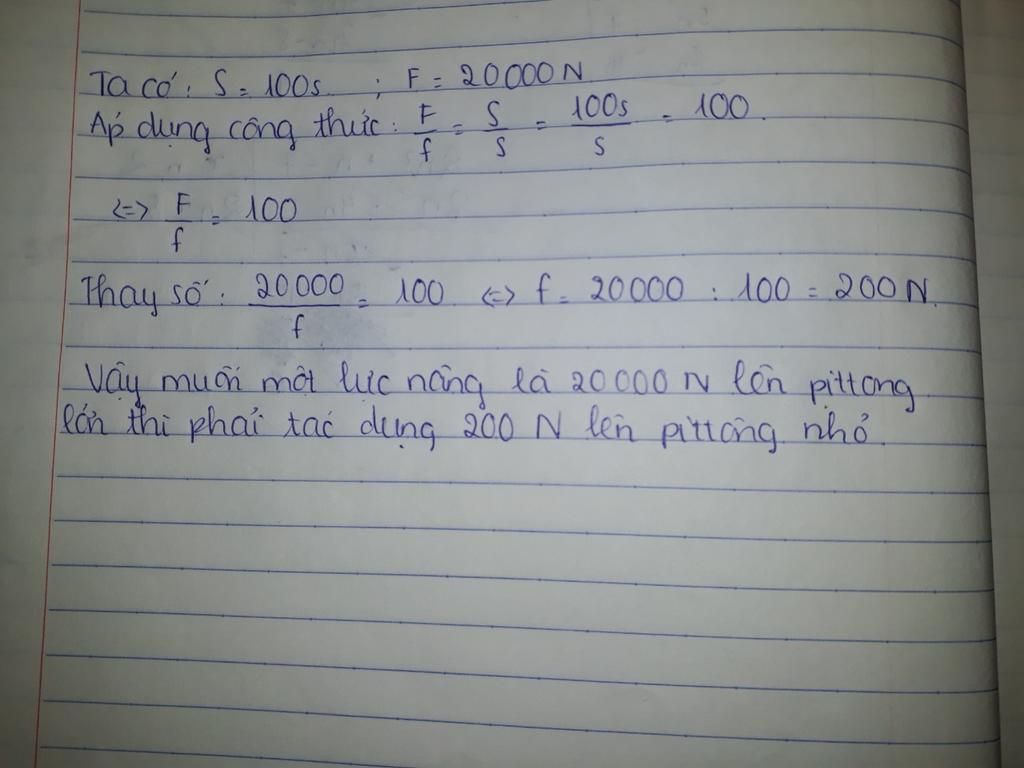 Ta có: S = 100s ; F = 20000 N
Áp dụng công thức: F/f = S/s = 100s/s = 100.
<=> F/f = 100
Thay số: 20000/f = 100 <=> f = 20000 : 100 = 200 N.
Vậy muốn một lực nâng là 20000 N lên pittong
lớn thì phải tác dụng 200 N lên pittông nhỏ.